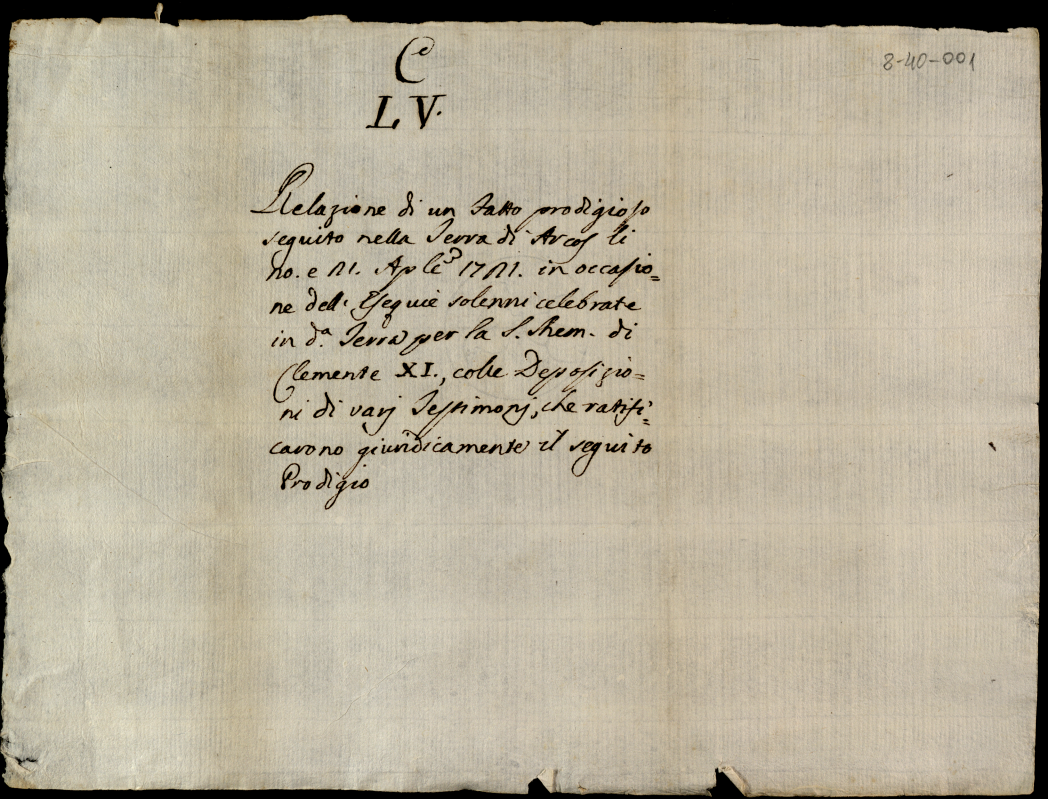 8-40-001
C
LV.
Relazione di un Fatto prodigioso
seguito nella Terra di Arcos li
e 21. Aple 1721. in occasio=
ne dell' Esequie solenni celebrate
in d.a Terra per la S. Mem. di
Clemente XI., colle Deposizio=
ni di varj Testimonj, che ratifi=
carono giuridicamente il seguito
Prodigio